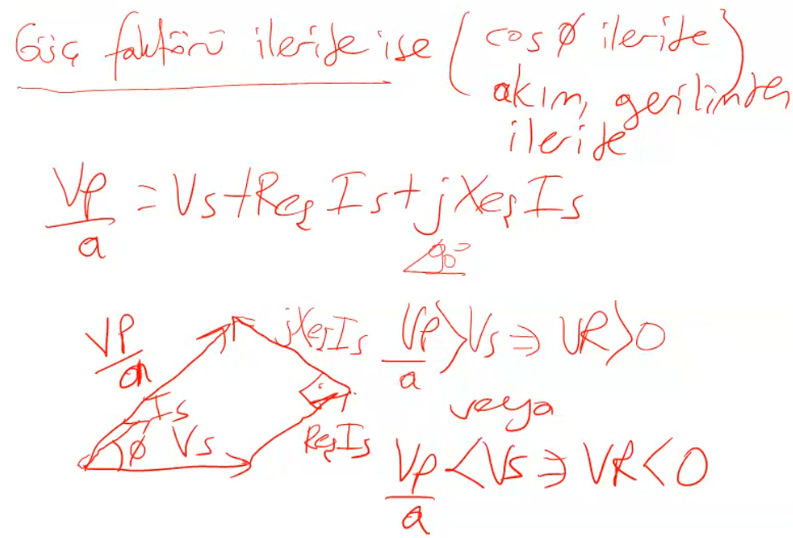 Güç faktörü ileride ise (cos ϕ ileride)
akım, gerilimden
ileride
Vp/a = Vs + Reş Is + j Xeş Is
90°
Vp/a
jXeşIs
Is
ϕ Vs
ReşIs
Vp/a > Vs ⇒ VR > 0
veya
Vp/a < Vs ⇒ VR < 0